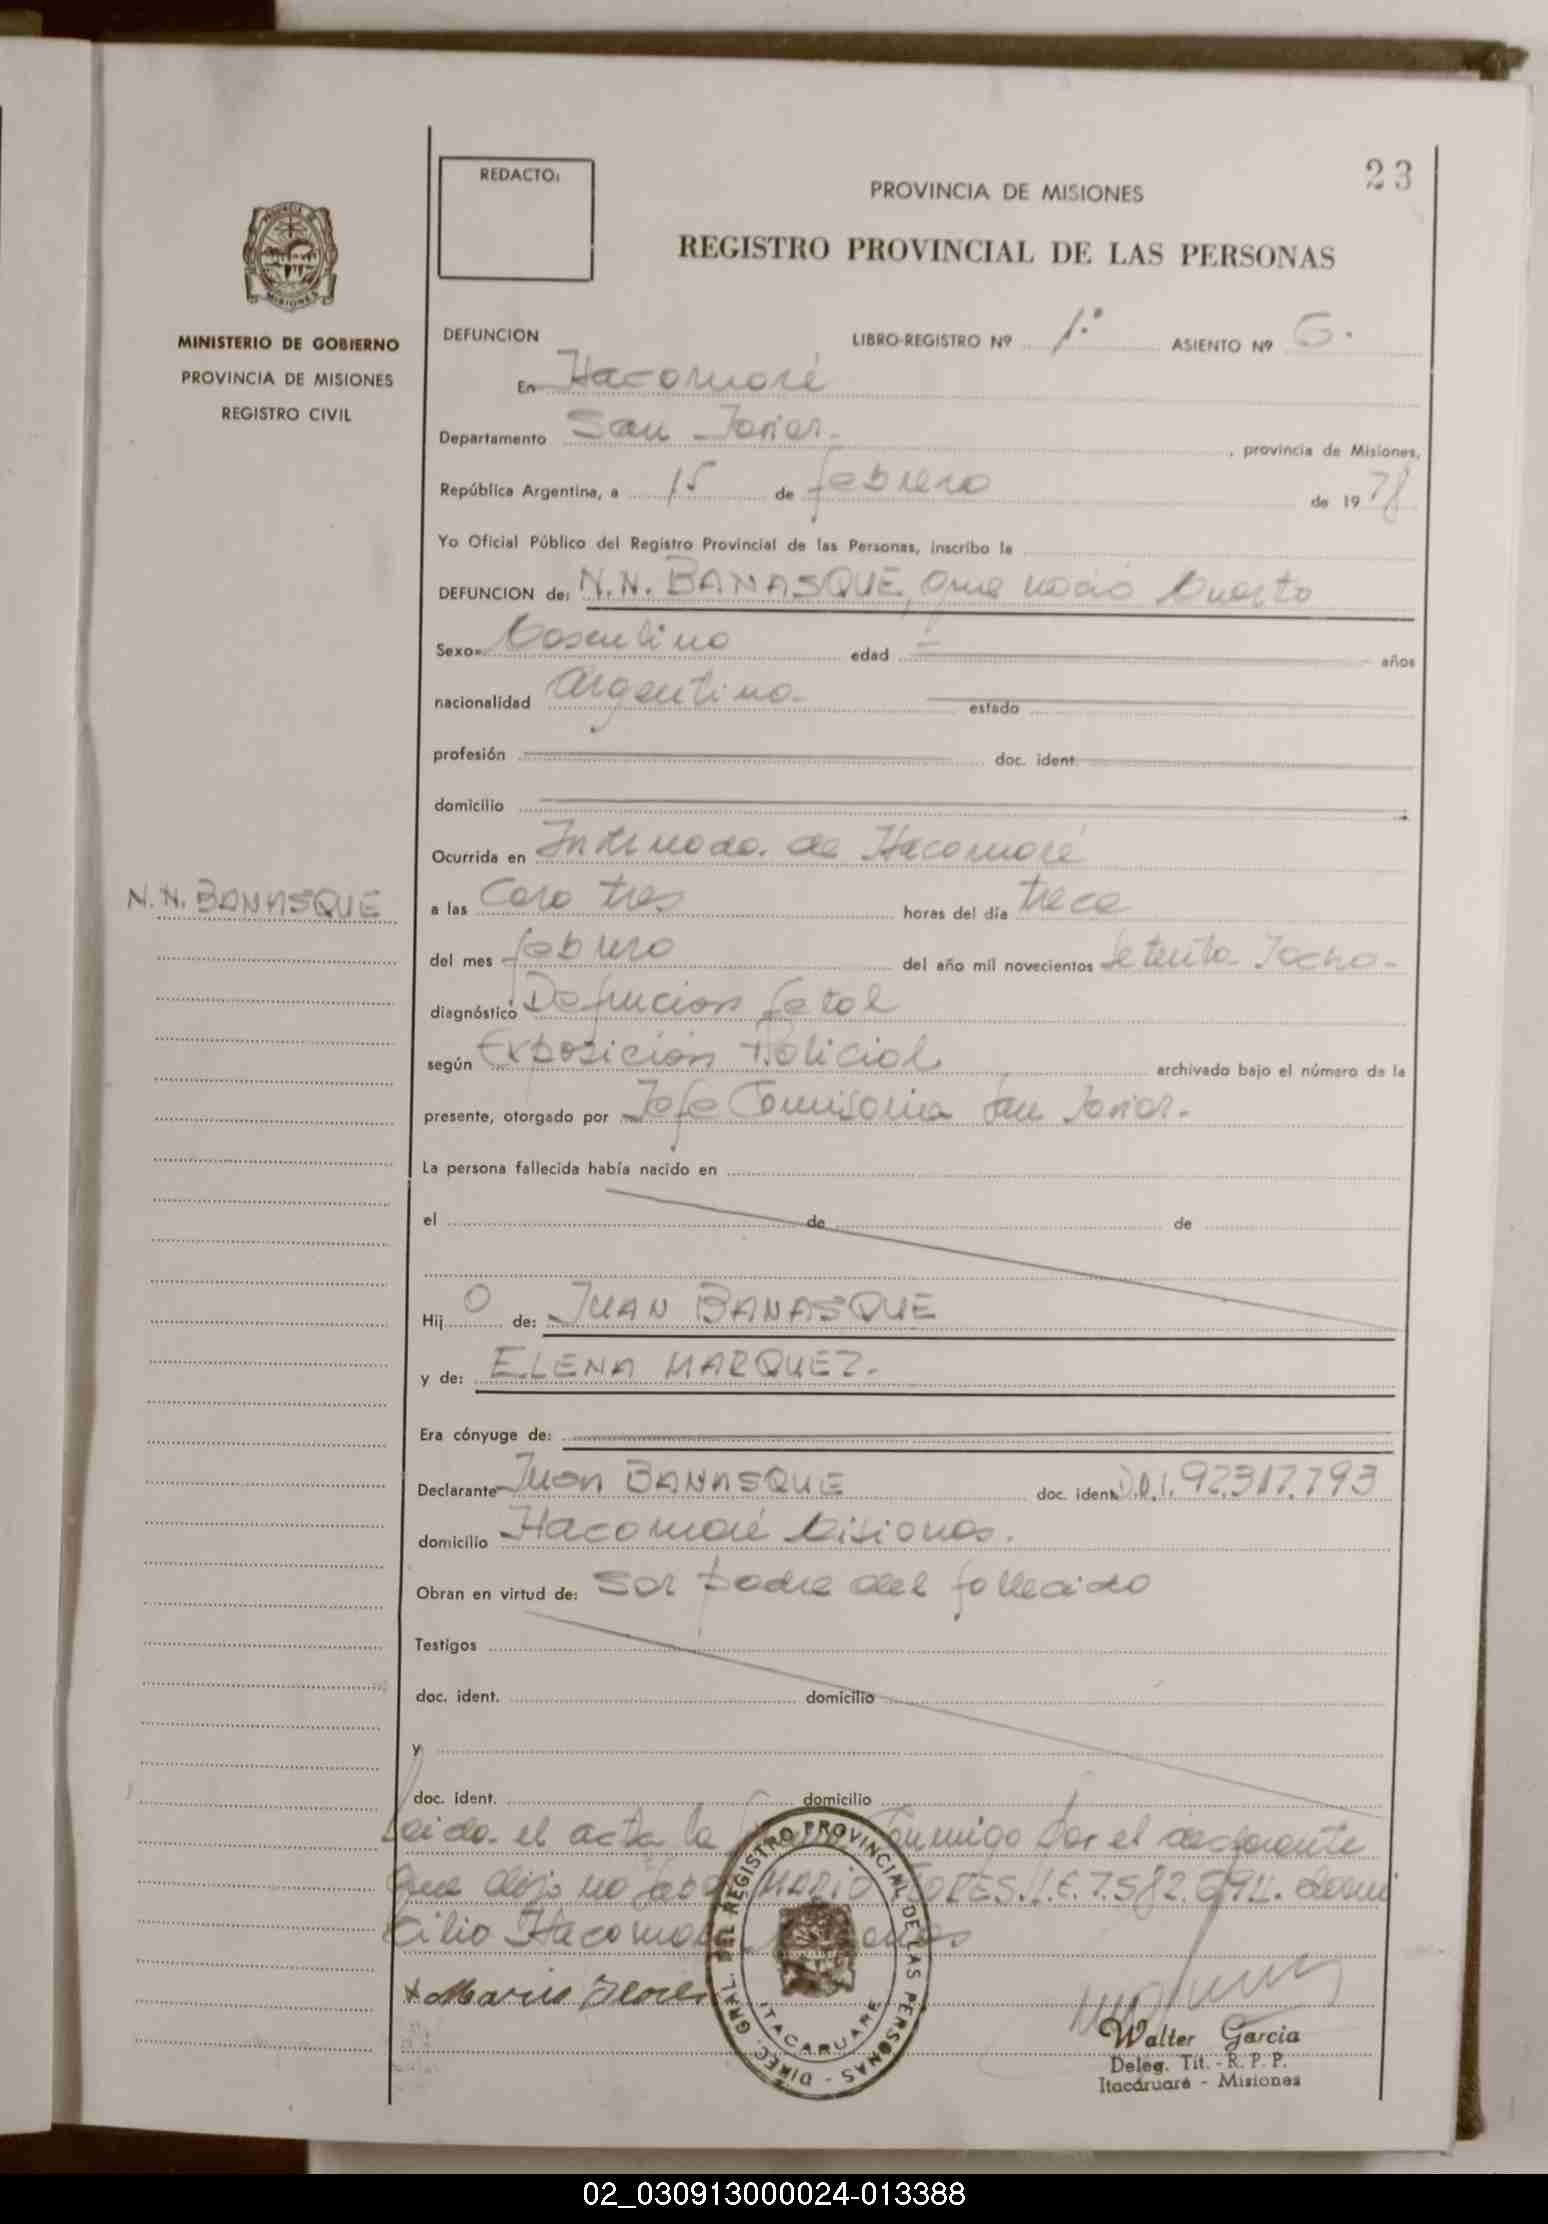 23
REDACTO:
PROVINCIA DE MISIONES
REGISTRO PROVINCIAL DE LAS PERSONAS
PROVINCIA DE
MISIONES
MINISTERIO DE GOBIERNO
PROVINCIA DE MISIONES
REGISTRO CIVIL
DEFUNCION LIBRO-REGISTRO Nº 1º ASIENTO Nº 6.
En Itacaruaré
Departamento San Javier. , provincia de Misiones,
República Argentina, a 15 de febrero de 1978
Yo Oficial Público del Registro Provincial de las Personas, inscribo la
DEFUNCION de: N.N. BANASQUE, que nació Muerto
Sexo Masculino edad años
nacionalidad Argentino. estado
profesión doc. ident.
domicilio
Ocurrida en Intinada. de Itacaruaré
N.N. BANASQUE
a las Cero tres horas del día trece
del mes febrero del año mil novecientos Setenta Iocho-
diagnóstico Defuncion fetal
según Exposición Policial archivado bajo el número de la
presente, otorgado por Jefe Comisaria San Javier.
La persona fallecida había nacido en
el de de
Hij o de: JUAN BANASQUE
y de: ELENA MARQUEZ.
Era cónyuge de:
Declarante Juan BANASQUE doc. ident. D.N.I. 92.317.793
domicilio Itacaruaré Misiones.
Obran en virtud de: Ser padre del fallecido
Testigos
doc. ident. domicilio
y
doc. ident. domicilio
Leida el acta la Conmigo Por el declarante
Que dijo no MARIO FLORES. L.E. 7.582.694. domi
cilio Itacaruaré Misiones
x Mario Flores
DIREC. GRAL. DEL REGISTRO PROVINCIAL DE LAS PERSONAS -
ITACARUARE
Walter Garcia
Deleg. Tit. - R. P. P.
Itacaruaré - Misiones
02_030913000024-013388